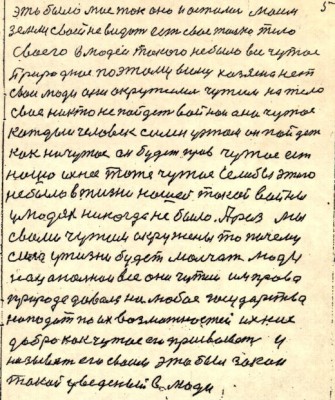 5
это было мне так она и остами маим
земли своей не видят есть свое только тело
своего в людей такого не было все чужое
природное поэтому вину хозяена нет
свои люди они окружении чужим на тело
свое никто не пойдет войной она чужое
каждый человек силен узнал он пойдет
как на чужое он будет прав чужое ест
наша и нее тоже чужое Если бы этого
не было в жизни нашей такой войны
у людях никогда не было. А раз мы
своим чужим окружены то почему
сила у жизни будет молчат люди
нацанолной все они чужии им права
природе давала на любое государства
нападат по их возможностей их них
добро как чужое ей присвоеват и
называт его своим это был закон
такой уведеный в люди